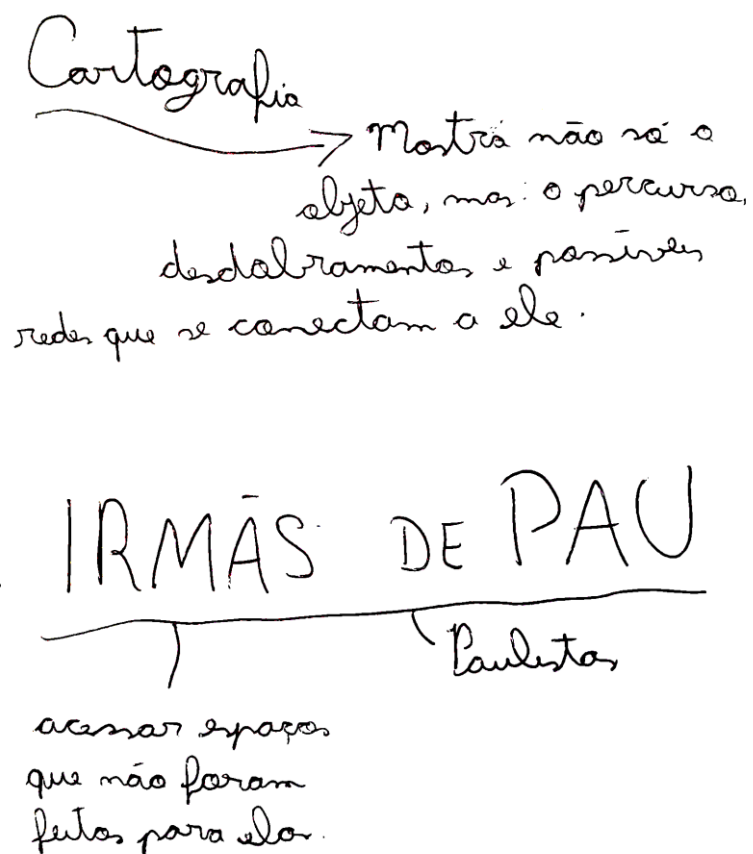 Cartografia
Mostra não só o
objeto, mas: o percurso,
desdobramentos e possíveis
redes que se conectam a ele.
IRMÃS DE PAU
Paulistas
acessar espaços
que não foram
feitos para elas.